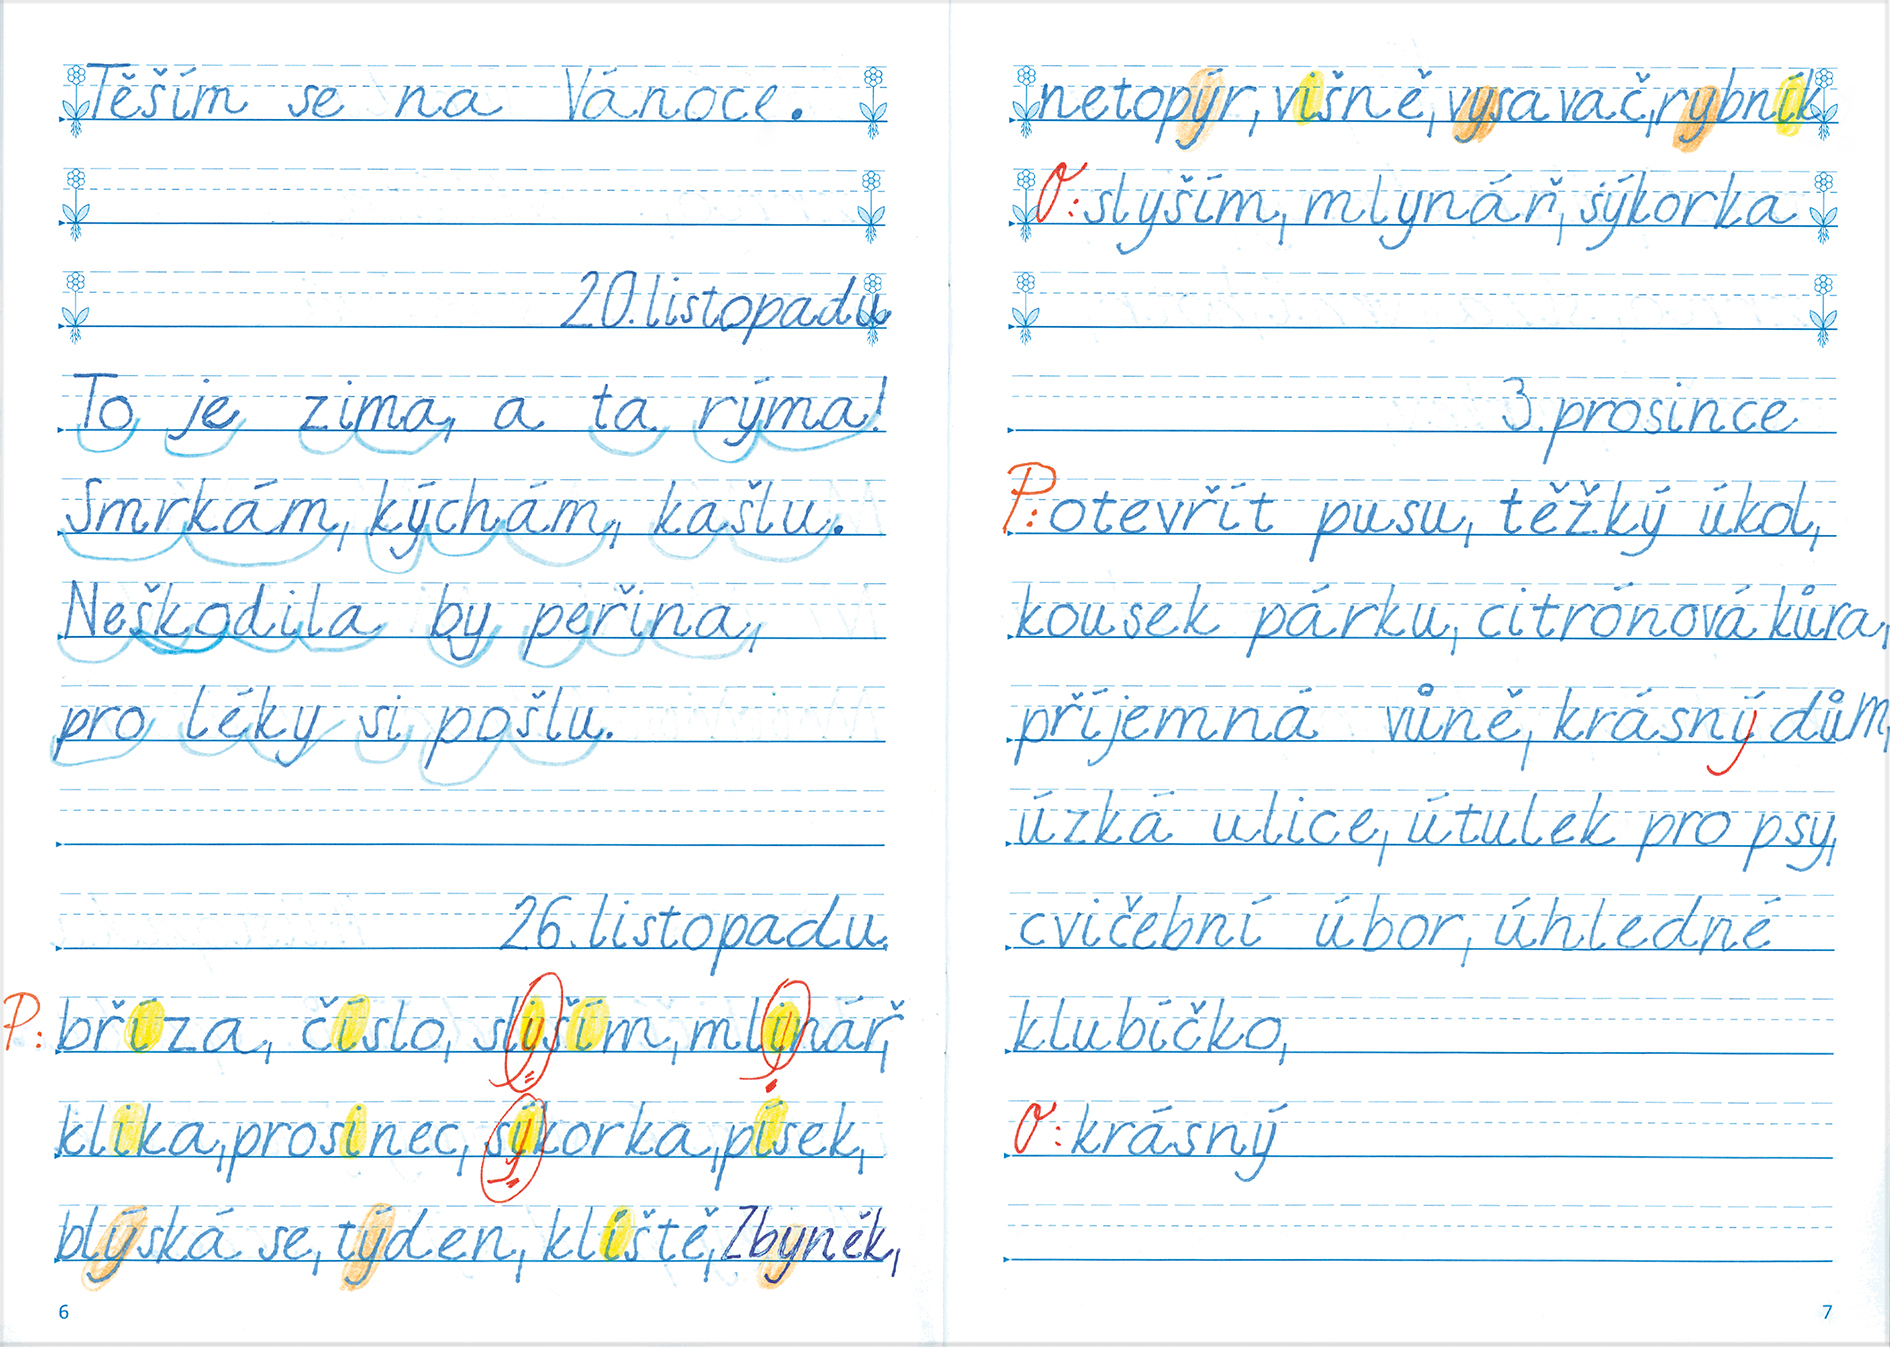 Těším se na Vánoce.
20. listopadu
To je zima, a ta rýma!
Smrkám, kýchám, kašlu.
Neškodila by peřina,
pro léky si pošlu.
26. listopadu
P: bříza, číslo, slyším, mlynář,
klika, prosinec, sýkorka, písek,
blýská se, týden, klíště, Zbyněk,
6
netopýr, višně, vysavač, rybník
O: slyším, mlynář, sýkorka
3. prosince
P: otevřít pusu, těžký úkol,
kousek párku, citrónová kůra,
příjemná vůně, krásný dům,
úzká ulice, útulek pro psy,
cvičební úbor, úhledné
klubíčko,
O: krásný
7